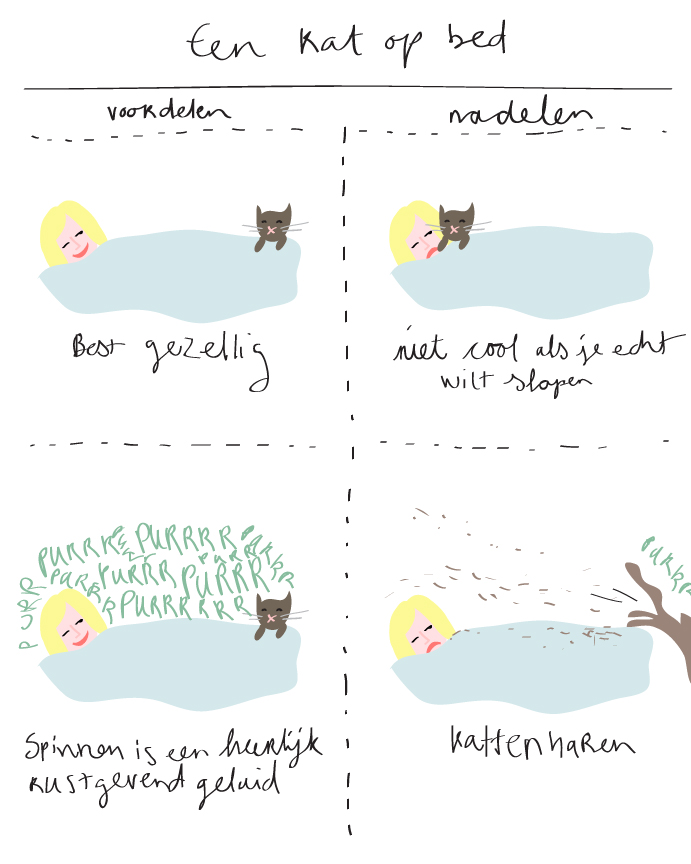 Een kat op bed
voordelen
nadelen
Best gezellig
niet cool als je echt
wilt slapen
PURRRR PURRRRR PURRR
PURR PURRR PURRR PURRRR
PURRR PURRRRRR
PURRR
Spinnen is een heerlijk
rustgevend geluid
kattenharen